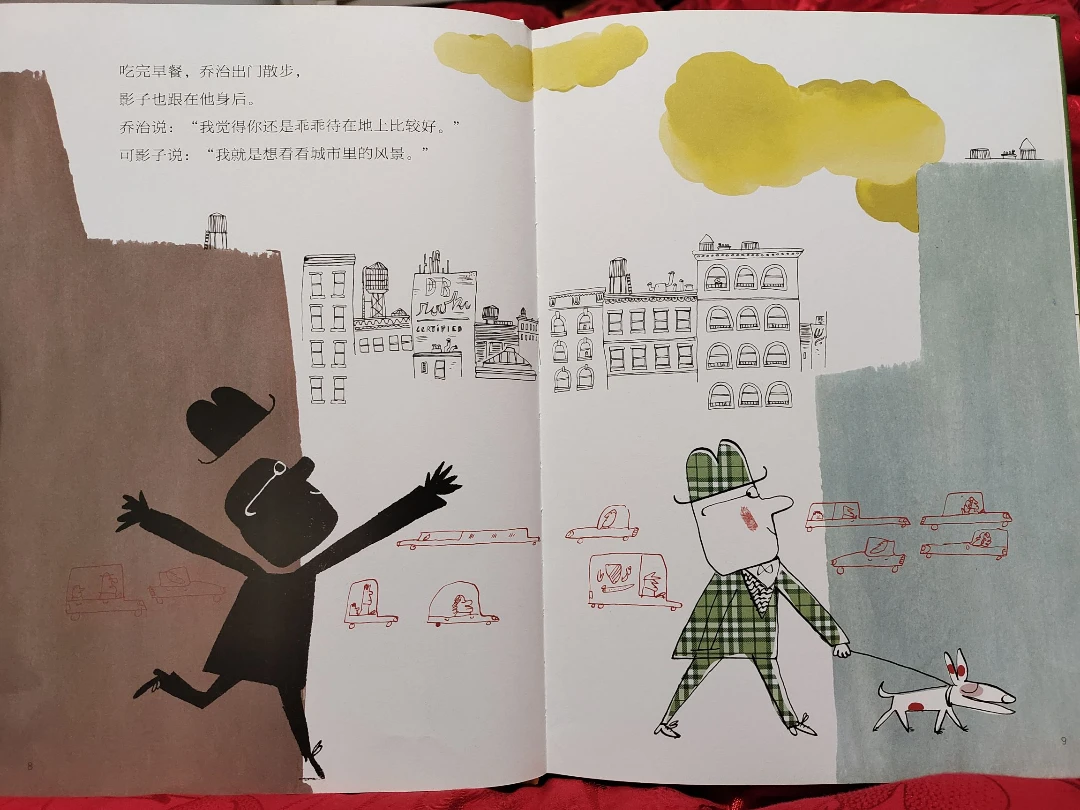 吃完早餐，乔治出门散步，
影子也跟在他身后。
乔治说：“我觉得你还是乖乖待在地上比较好。”
可影子说：“我就是想看看城市里的风景。”
DB
CERTIFIED
8
9